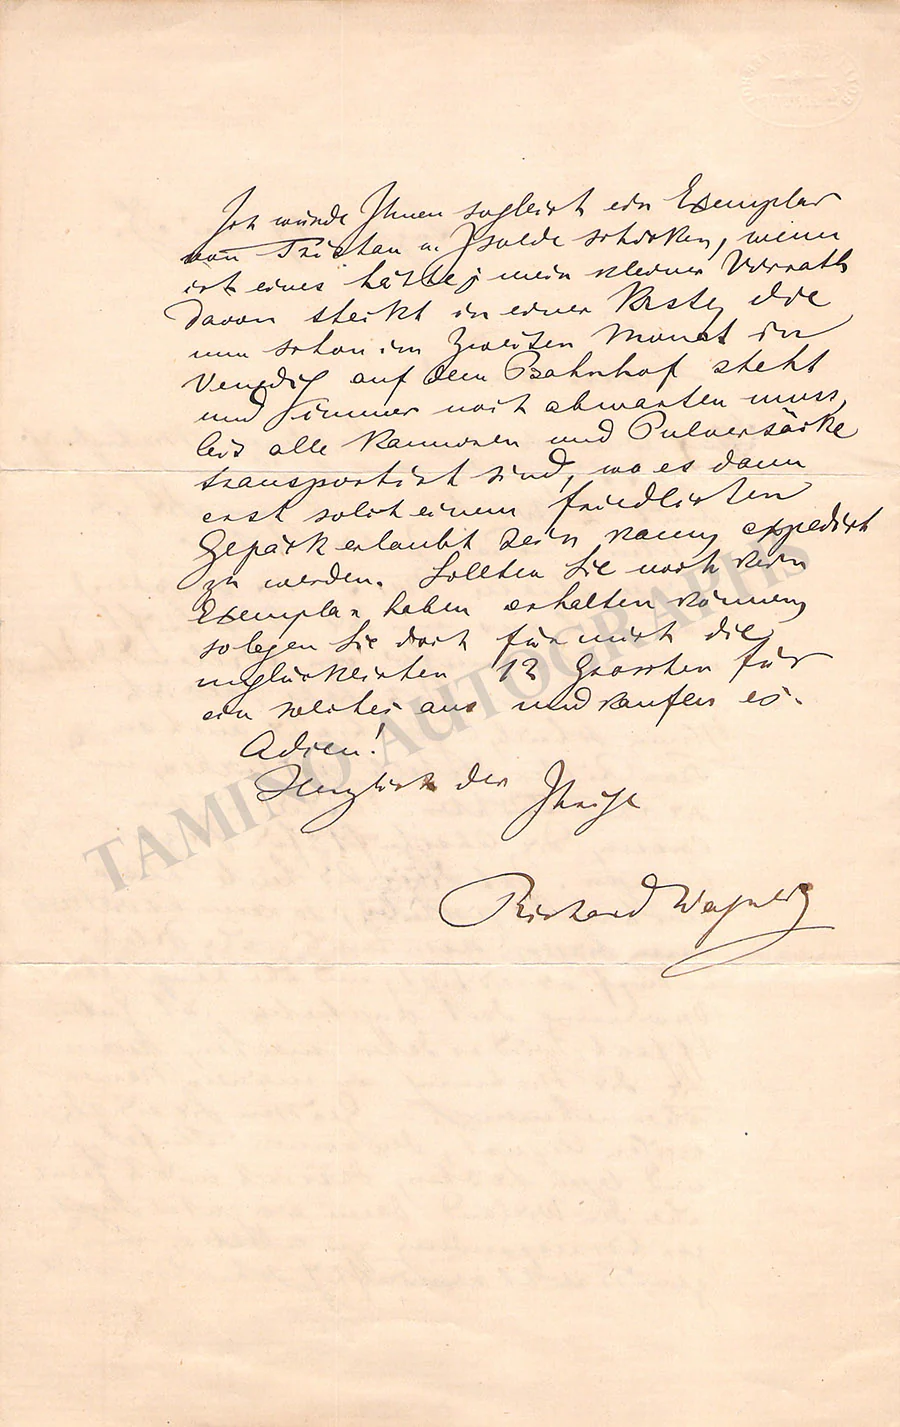 Ich würde Ihnen sogleich ein Exemplar
von Tristan u. Isolde schicken, wenn
ich eines hätte; mein kleiner Vorrath
davon steckt in einer Kiste, die
nun schon im zweiten Monat in
Venedig auf dem Bahnhof steht
und immer noch abwarten muss,
bis alle Kanonen und Pulversäcke
transportirt sind, wo es dann
erst solch einem friedlichen
Gepäck erlaubt sein kann, expedirt
zu werden. Sollten Sie noch kein
Exemplar haben erhalten können,
so legen Sie doch für mich die
unglücklichen 12 Groschen für
ein solches aus und kaufen es.
Adieu!
Herzlich der Ihrige
Richard Wagner
TAMINO AUTOGRAPHS